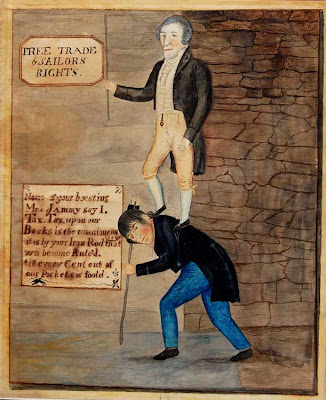 FREE TRADE
& SAILORS
RIGHTS.
None of your boasting
Mr. Jammy say I,
Tax, Tax, upon our
Backs is the
it is by your Iron Rod that
we become Ruled.
till every Cent out of
our Pockets is foold.